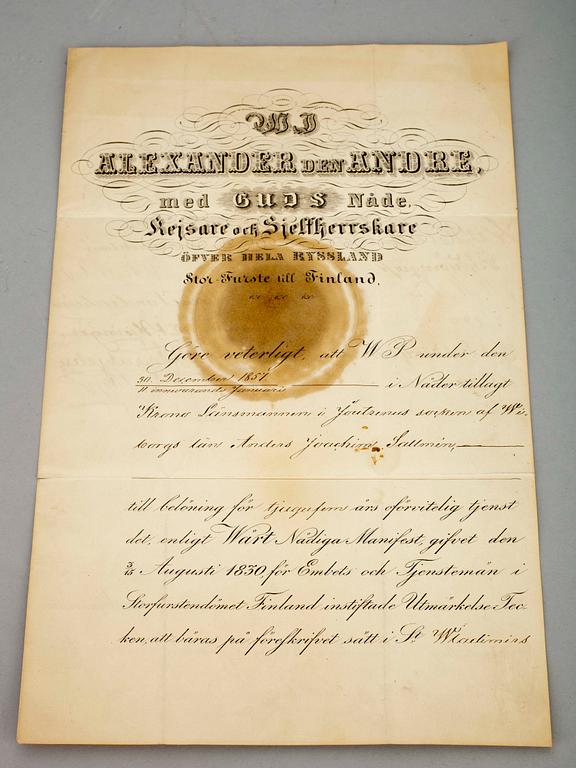 WJ
ALEXANDER DEN ANDRE,
med GUDS Nåde,
Kejsare och Sjelfherrskare
ÖFVER HELA RYSSLAND
Stor-Furste till Finland,
&c &c &c
Göre veterligt, att WJ under den
30. December 1857
11 innevarande Januarii i Nåder tillagt
Krono Länsmannen i Jäutzenus socken af Wi-
borgs län Anders Joachim Sallmén,
till belöning för tjugufem års oförvitelig tjenst
det, enligt Wårt Nådiga Manifest, gifvet den
3/15 Augusti 1830, för Embets och Tjenstemän i
Storfurstendömet Finland instiftade Utmärkelse Tec-
ken, att bäras på föreskrifvet sätt i St Wladimirs